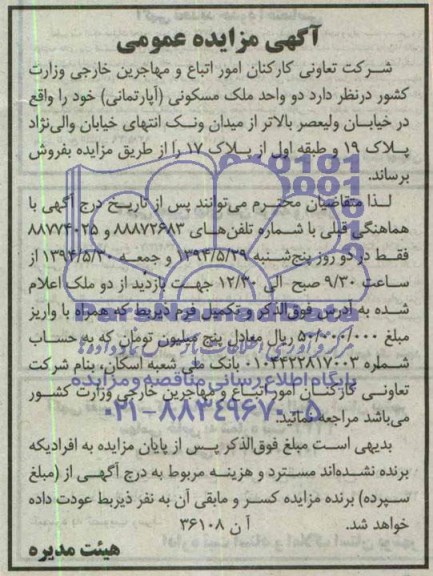 آگهی مزایده عمومی
شرکت تعاونی کارکنان امور اتباع و مهاجرین خارجی وزارت
کشور درنظر دارد دو واحد ملک مسکونی (آپارتمانی) خود را واقع
در خیابان ولیعصر بالاتر از میدان ونک انتهای خیابان والی‌نژاد
پلاک ۱۹ و طبقه اول از پلاک ۱۷ را از طریق مزایده بفروش
برساند.
لذا متقاضیان محترم می‌توانند پس از تاریخ درج آگهی با
هماهنگی قبلی با شماره تلفن‌های ۸۸۸۷۲۶۸۳ و ۸۸۷۷۴۰۲۵
فقط در دو روز پنج‌شنبه ۱۳۹۴/۵/۲۹ و جمعه ۱۳۹۴/۵/۳۰ از
ساعت ۹/۳۰ صبح الی ۱۲/۳۰ جهت بازدید از دو ملک اعلام
شده به آدرس فوق‌الذکر و تکمیل فرم ذیربط که همراه با واریز
مبلغ ۵۰/۰۰۰/۰۰۰ ریال معادل پنج میلیون تومان که به حساب
شماره ۰۱۰۴۴۲۲۸۱۷۰۰۳ بانک ملی شعبه اسکان، بنام شرکت
تعاونی کارکنان امور اتباع و مهاجرین خارجی وزارت کشور
می‌باشد مراجعه نمائید.
بدیهی است مبلغ فوق‌الذکر پس از پایان مزایده به افرادیکه
برنده نشده‌اند مسترد و هزینه مربوط به درج آگهی از (مبلغ
سپرده) برنده مزایده کسر و مابقی آن به نفر ذیربط عودت داده
خواهد شد. آ ن ۳۶۱۰۸
هیئت مدیره
پایگاه اطلاع رسانی مناقصه و مزایده
۰۲۱-۸۸۳۴۹۶۷۰-۵